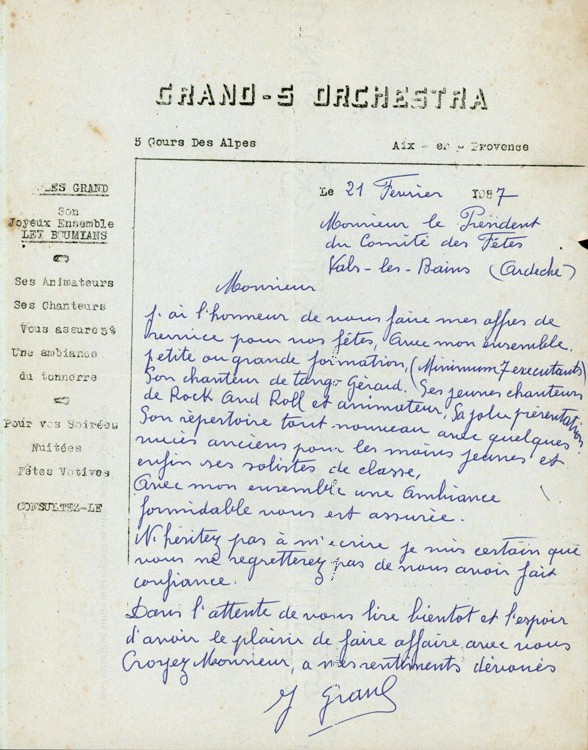 GRAND-S ORCHESTRA
5 Cours Des Alpes
Aix - en - Provence
LES GRAND
Son
Joyeux Ensemble
LEY BOUMIANS
Ses Animateurs
Ses Chanteurs
Vous assure
Une ambiance
du tonnerre
Pour vos Soirées
Nuitées
Fêtes Votives
CONSULTEZ-LE
Le 21 Fevrier 1967
Monsieur le Président
du Comité des Fêtes
Vals-les-Bains (Ardeche)
Monsieur
J'ai l'honneur de vous faire mes offres de
service pour vos fêtes, avec mon ensemble.
petite ou grande formation, (Minimum 7 executants)
Son chanteur de tango Gérard. Ses jeunes chanteurs
de Rock And Roll et animateur, Sa jolie présentation
Son répertoire tout nouveau avec quelques
succés anciens pour les moins jeunes et
enfin ses solistes de classe,
Avec mon ensemble une ambiance
formidable vous est assurée.
N'hésitez pas à m'ecrire je suis certain que
vous ne regretterez pas de nous avoir fait
confiance.
Dans l'attente de vous lire bientot et l'espoir
d'avoir le plaisir de faire affaire avec vous
Croyez Monsieur, a mes sentiments dévoués
J Grand